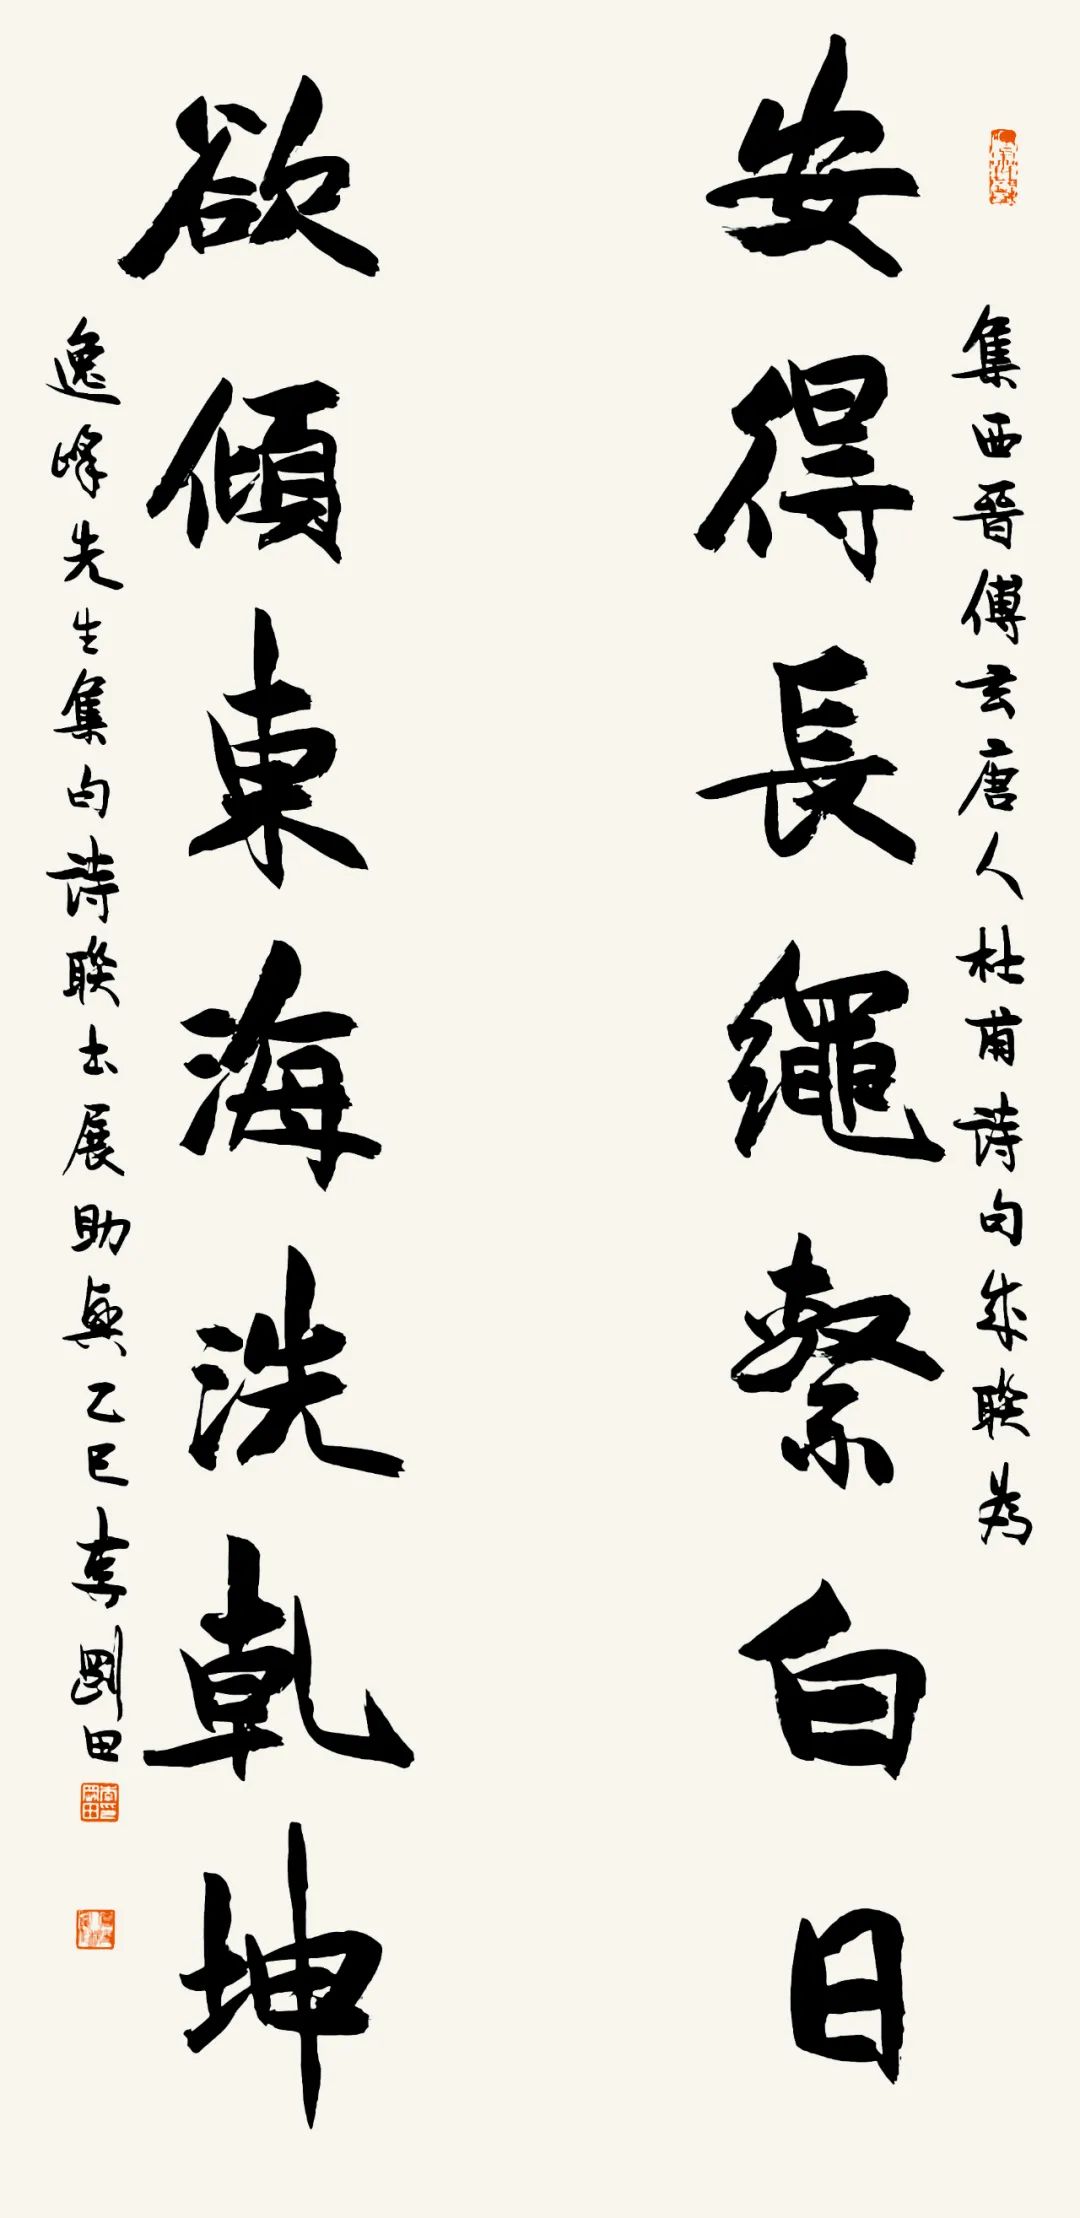 安得長繩繫白日
集西晉傅玄唐人杜甫詩句成聯為
欲傾東海洗乾坤
逸峰先生集句詩聯書展助興乙巳李剛田